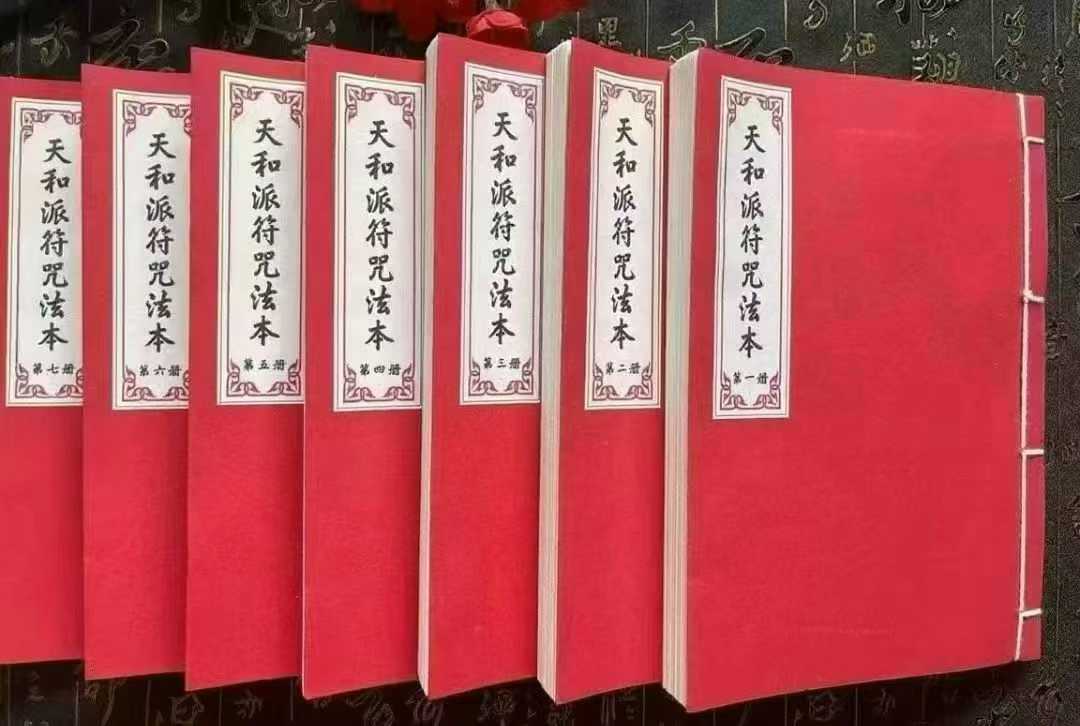 天和派符咒法本
第一册
天和派符咒法本
第二册
天和派符咒法本
第三册
天和派符咒法本
第四册
天和派符咒法本
第五册
天和派符咒法本
第六册
天和派符咒法本
第七册